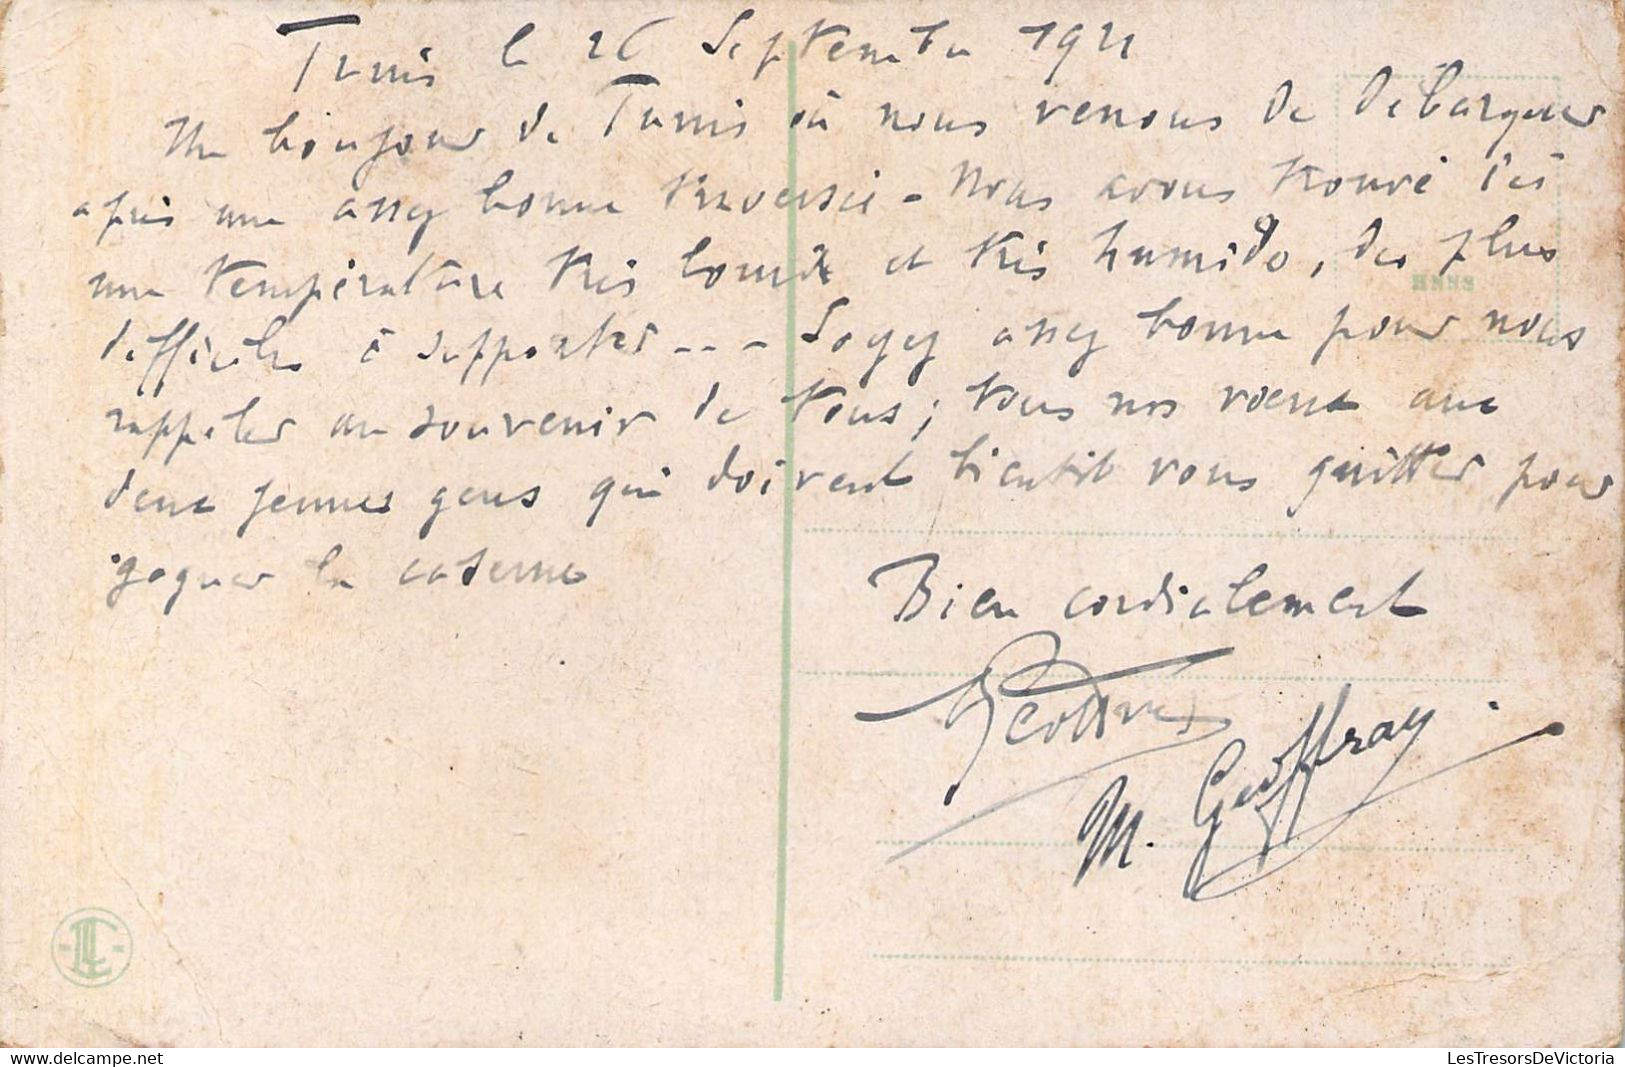 Tunis le 26 Septembre 1921
Un bonjour de Tunis où nous venons de débarquer
après une assez bonne traversée - Nous avons trouvé ici
une température très lourde et très humide, des plus
difficiles à supporter - - - Soyez assez bonne pour nous
rappeler au souvenir de tous ; tous nos voeux aux
deux jeunes gens qui doivent bientôt vous quitter pour
gagner la caserne
Bien cordialement
M. Geoffray
LL
LesTresorsDeVictoria